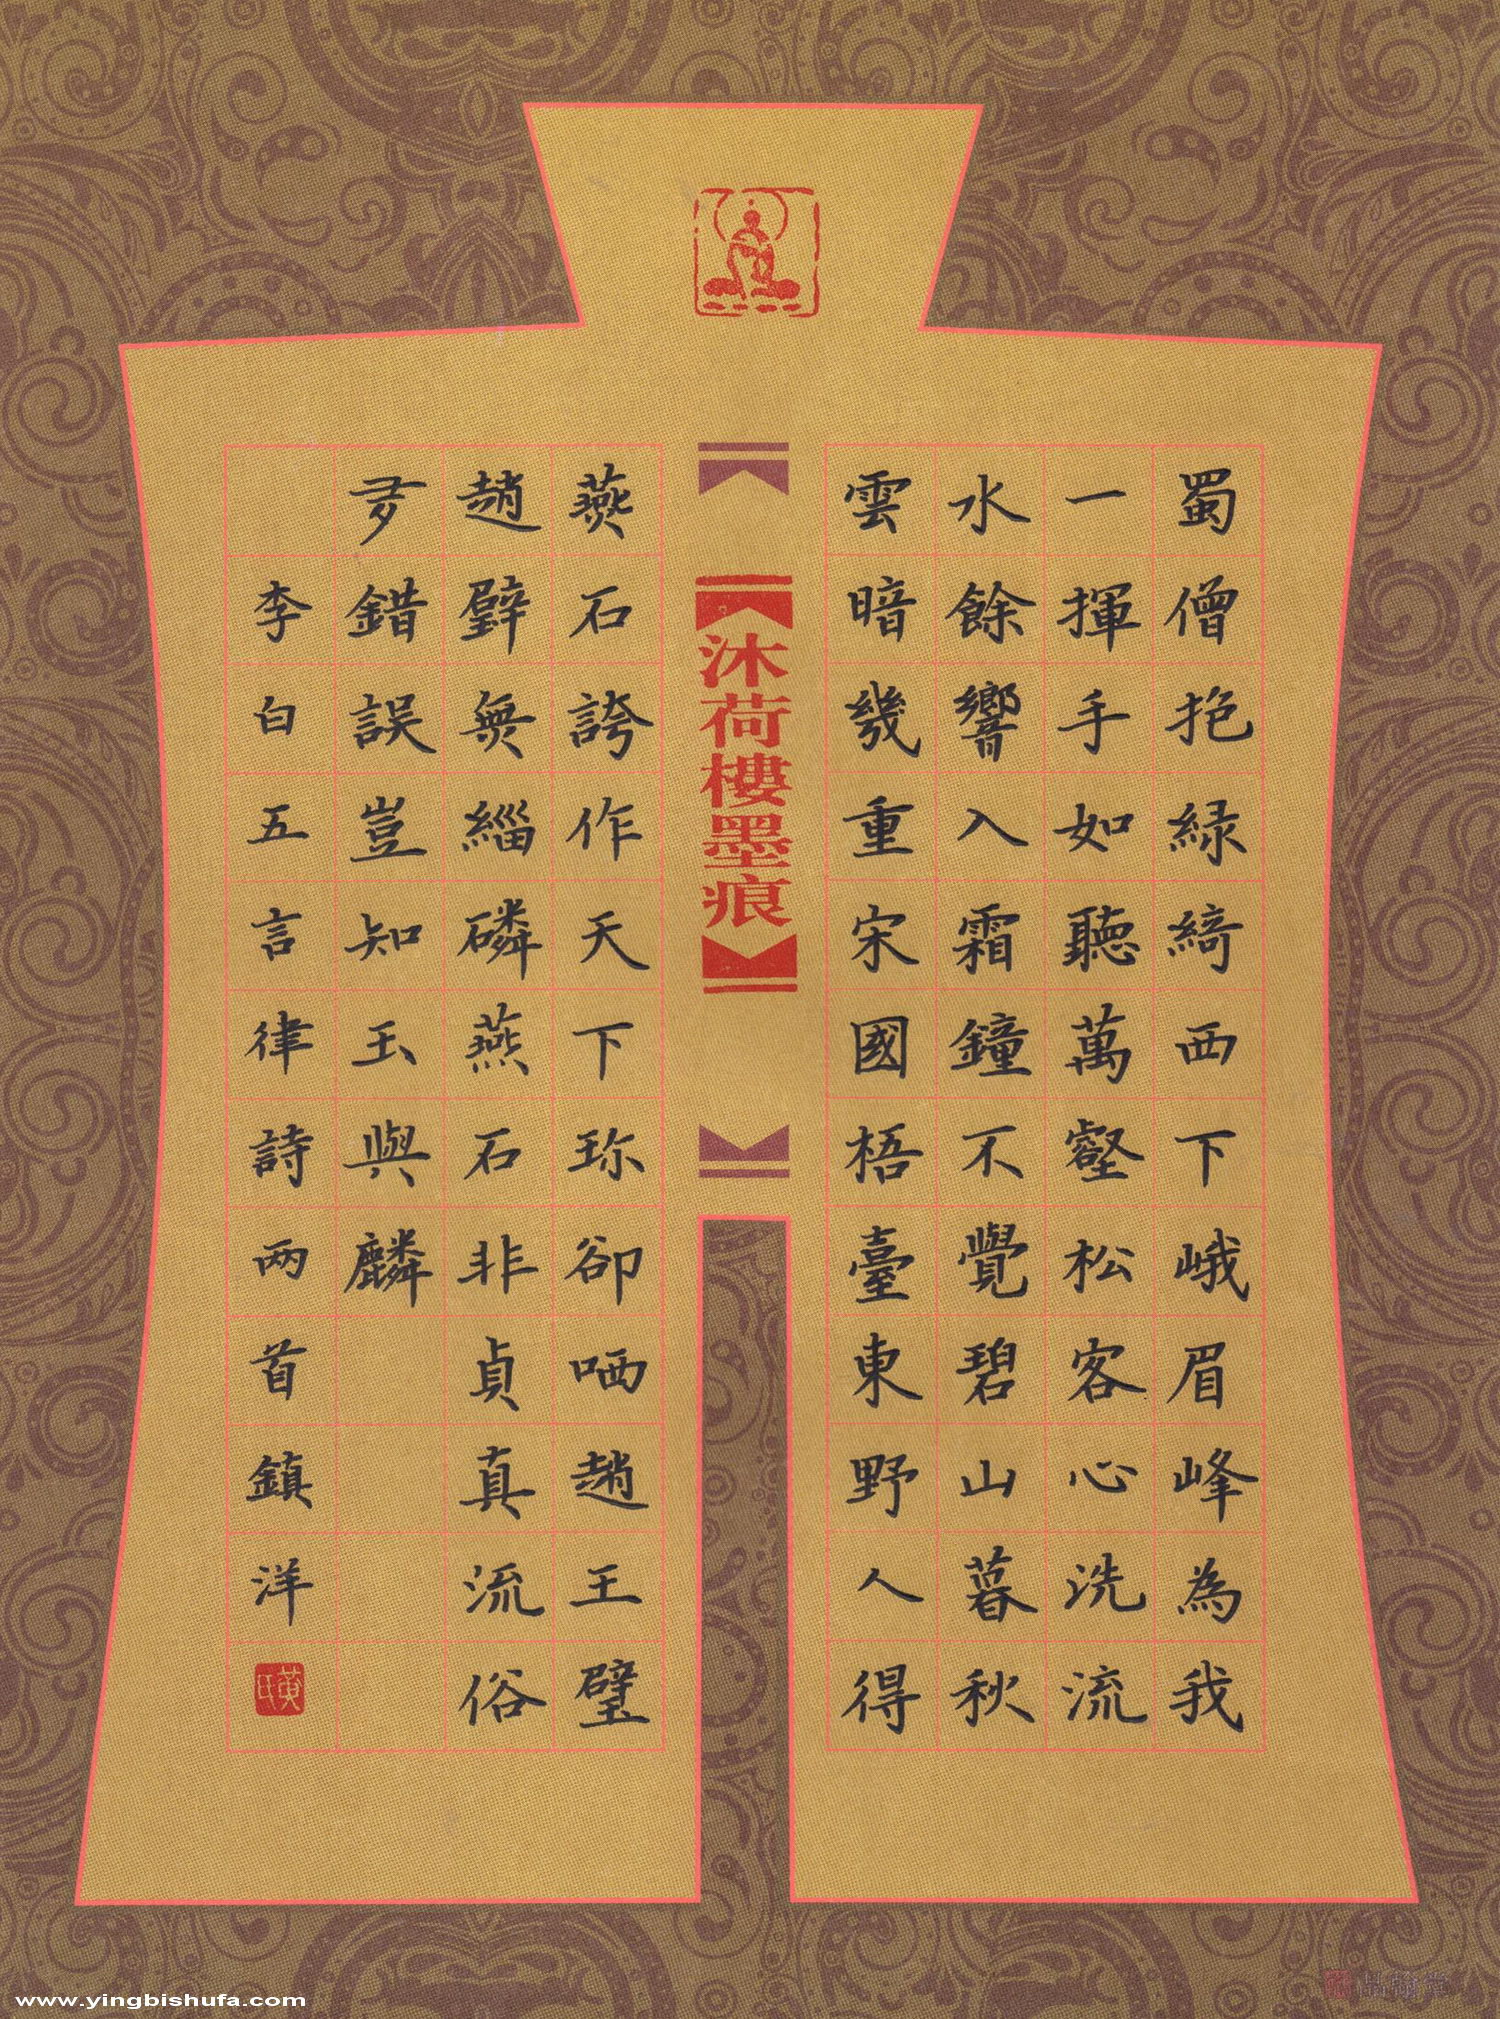 蜀僧抱緑綺西下峨眉峰為我
一揮手如聽萬壑松客心洗流
水餘響入霜鐘不覺碧山暮秋
雲暗幾重宋國梧臺東野人得
沐荷樓墨痕
燕石誇作天下珍卻哂趙王璧
趙璧無緇磷燕石非貞真流俗
多錯誤豈知玉與麟
李白五言律詩兩首鎮洋
www.yingbishufa.com